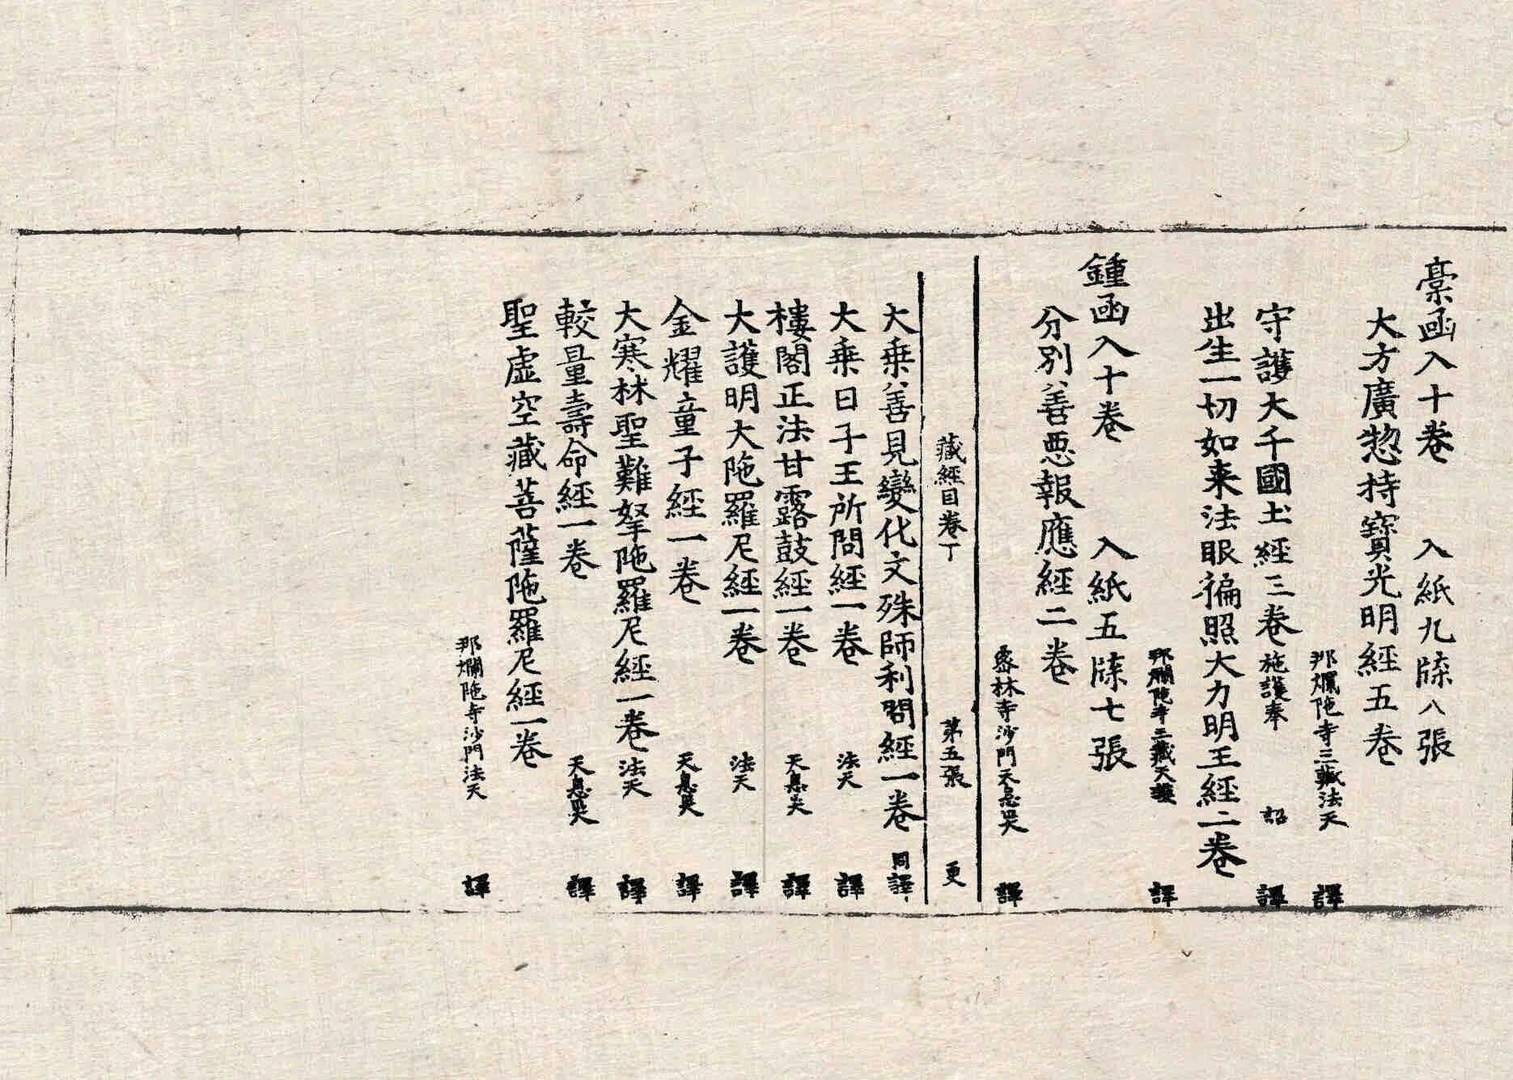 槀函入十卷　入紙九牒八張
大方廣揔持寶光明經五卷
那爛陁寺三藏法天　譯
守護大千國土經三卷　施護奉　詔　譯
出生一切如来法眼徧照大力明王經二卷
那爛陁寺三藏天護　譯
鍾函入十卷　入紙五牒七張
分別善悪報應經二卷
密林寺沙門天息災　譯
藏經目卷丁　第五張　更
大乗善見變化文殊師利問經一卷　同譯
大乗日子王所問經一卷　法天　譯
樓閣正法甘露鼓經一卷　天息災　譯
大護明大陁羅尼經一卷　法天　譯
金耀童子經一卷　天息災　譯
大寒林聖難拏陁羅尼經一卷　法天　譯
較量壽命經一卷　天息災　譯
聖虛空藏菩薩陁羅尼經一卷
那爛陁寺沙門法天　譯